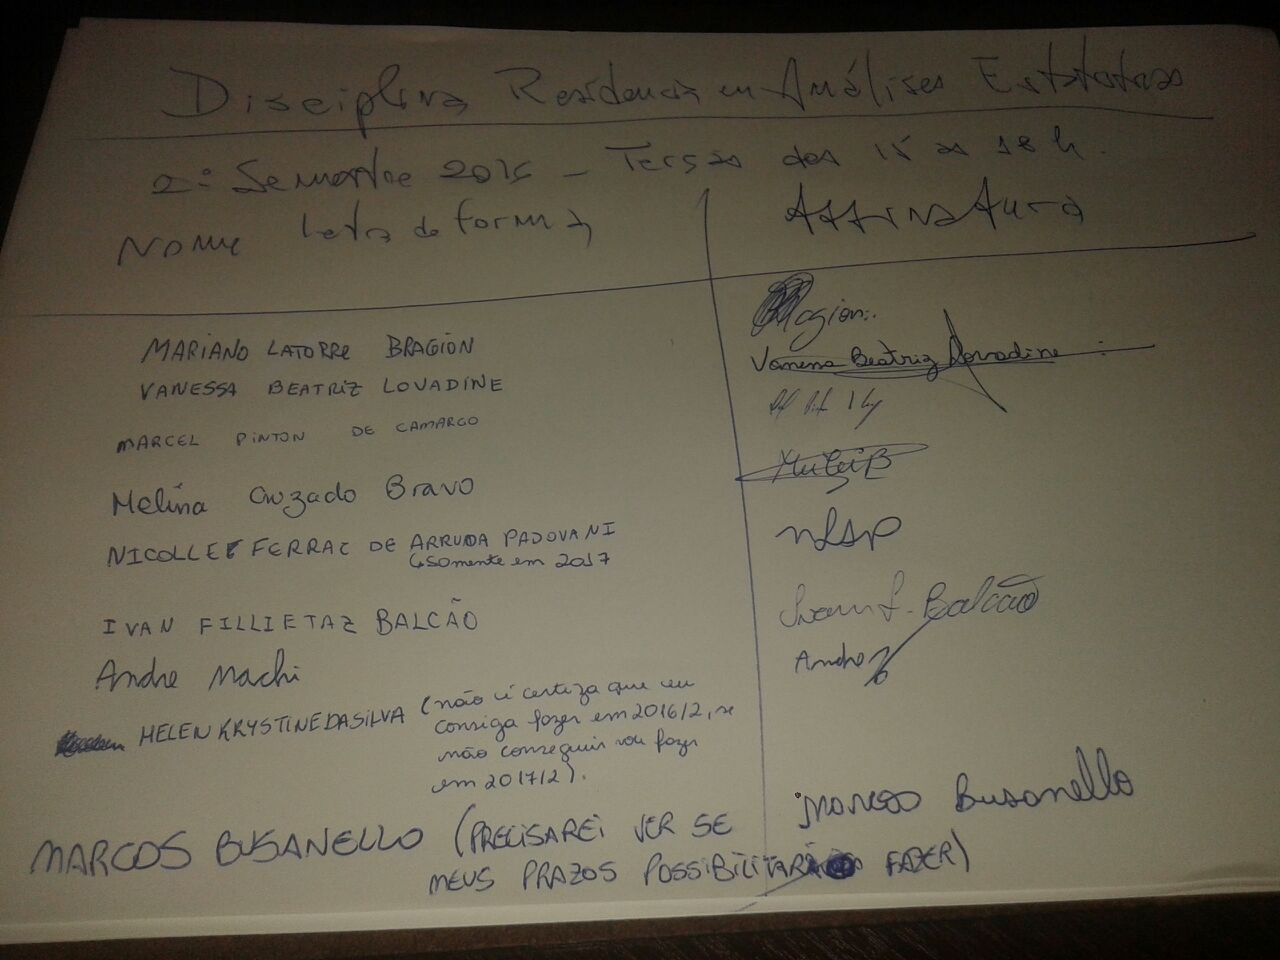 Disciplina Residencia em Análises Estatísticas
2º Semestre 2016 - Terças das 15 as 18 h.
Nome Letra de forma Assinatura
MARIANO LATORRE BRAGION Bragion
VANESSA BEATRIZ LOVADINE Vanessa Beatriz Lovadine
MARCEL PINTON DE CAMARGO
Melina Cruzado Bravo
NICOLLE FERRAZ DE ARRUDA PADOVANI NFAP
↳ somente em 2017
IVAN FILLIETAZ BALCÃO Ivan F. Balcão
Andre Machi Andre
HELEN KRYSTINE DA SILVA (não é certeza que eu
consiga fazer em 2016/2, se
não conseguir vou fazer
em 2017/2).
MARCOS BUSANELLO (PRECISAREI VER SE Marcos Busanello
MEUS PRAZOS POSSIBILITARÃO FAZER)